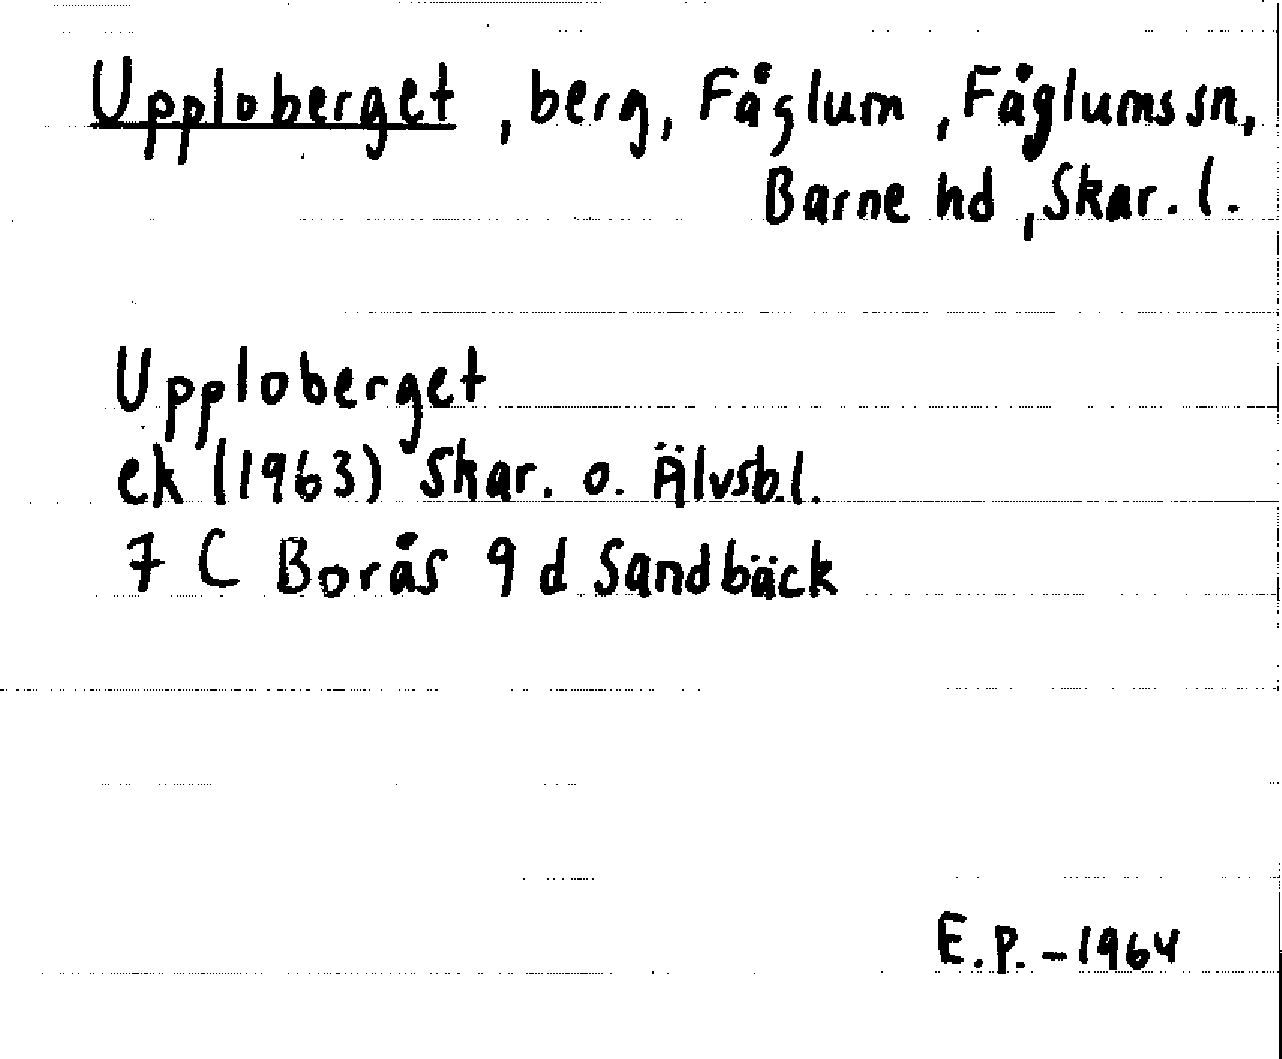 Upploberget, berg, Fåglum, Fåglums sn,
Barne hd, Skar. l.
Upploberget
ek (1963) Skar. o. Älvsb.l.
7 C Borås 9 d Sandbäck
E.P. - 1964